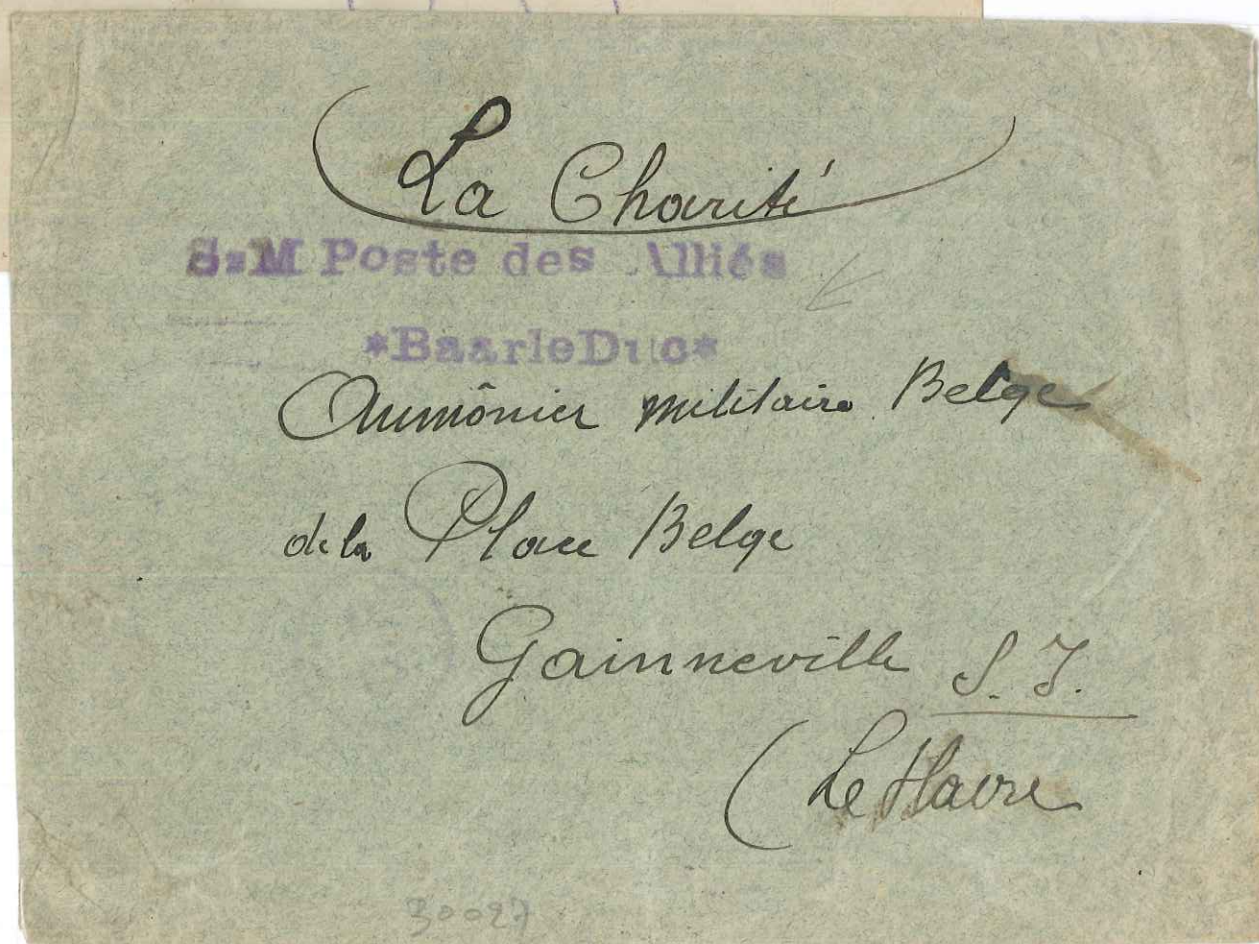 La Charité
S=M Poste des Alliés
*BaarleDuc*
Aumônier militaire Belge
de la Place Belge
Gainneville S. I.
(Le Havre
30027